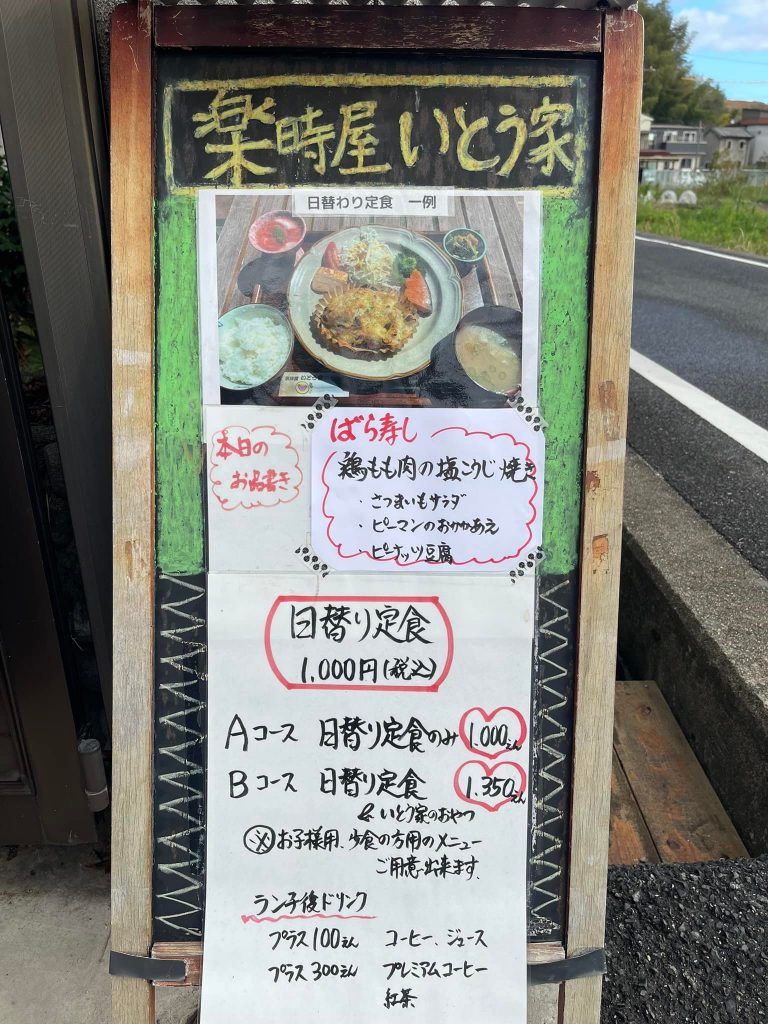 楽時屋 いとう家
日替わり定食 一例
本日の
お品書き
ばら寿し
鶏もも肉の塩こうじ焼き
・さつまいもサラダ
・ピーマンのおかかあえ
・ピーナッツ豆腐
日替り定食
1,000円(税込)
Aコース 日替り定食のみ 1.000えん
Bコース 日替り定食 1.350えん
いとう家のおやつ
※お子様用、少食の方用のメニュー
ご用意出来ます。
ランチ後ドリンク
プラス100えん コーヒー、ジュース
プラス300えん プレミアムコーヒー
紅茶